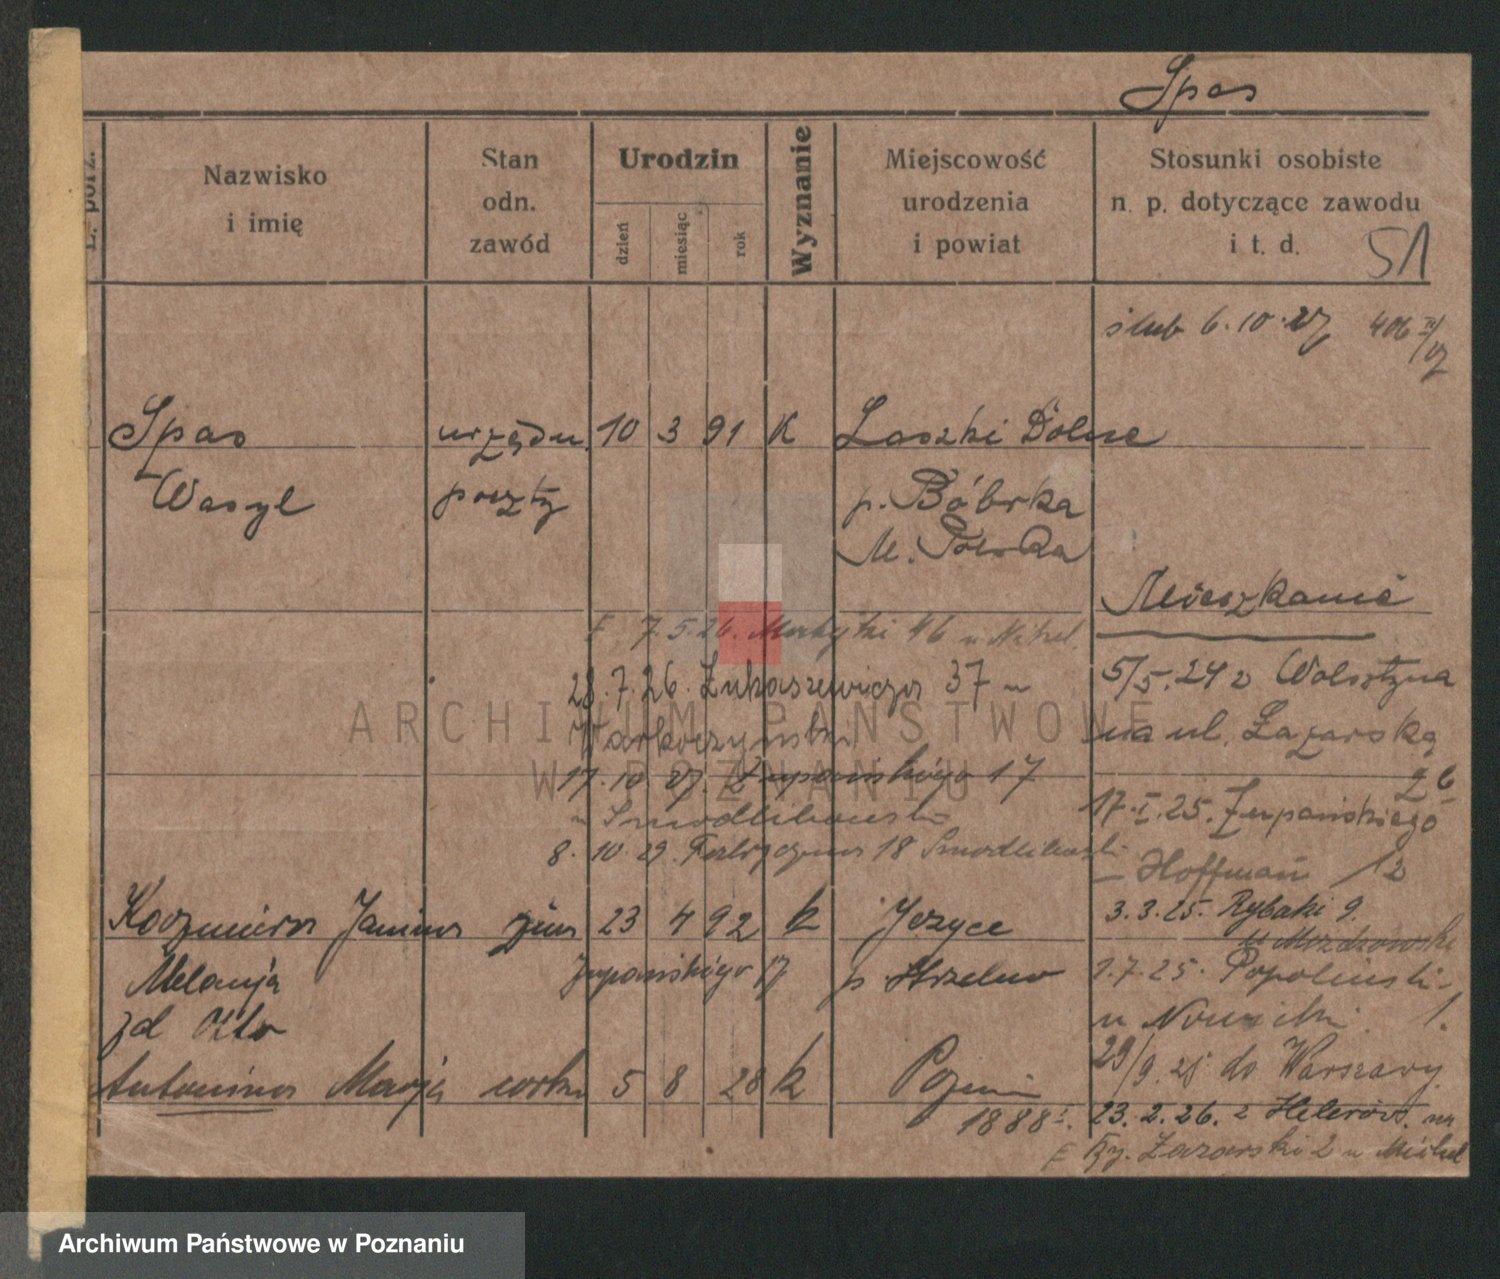 Spas
L. porz.
Nazwisko
i imię
Stan
odn.
zawód
Urodzin
dzień
miesiąc
rok
Wyznanie
Miejscowość
urodzenia
i powiat
Stosunki osobiste
n. p. dotyczące zawodu
i t. d.
51
ślub 6.10.27 406
Spas urzędn. 10 3 91 K Laszki Dolne
Wasyl poczty p. Bóbrka
M. Polska
Mieszkanie
7.5.26. 46 u
28.7.26. Łukaszewicza 37 u
5/5.24 z Wolsztyna
na ul. Łazarską
26
17.10.27. Żupańskiego 17
u Smodlibowski
17.I.25. Żupańskiego
Hoffman 12
8.10.29. Fabryczna 18 Smodlibowski
Kazmiera Janina żona 23 4 92 k Jeżyce
3.3.25. Rybaki 9.
u Mozdzowski
Melanja Żupańskiego 17 p. Strzelno
1.7.25. Popolinski
zd Otto
u Nowicki 1.
29/9.25 do Warszawy
Antonina Marja córka 5 8 28 k Poznań
1888
23.2.26. z Helerów. na
Ry. Łazarski 2 u
ARCHIWUM PAŃSTWOWE
W POZNANIU
Archiwum Państwowe w Poznaniu